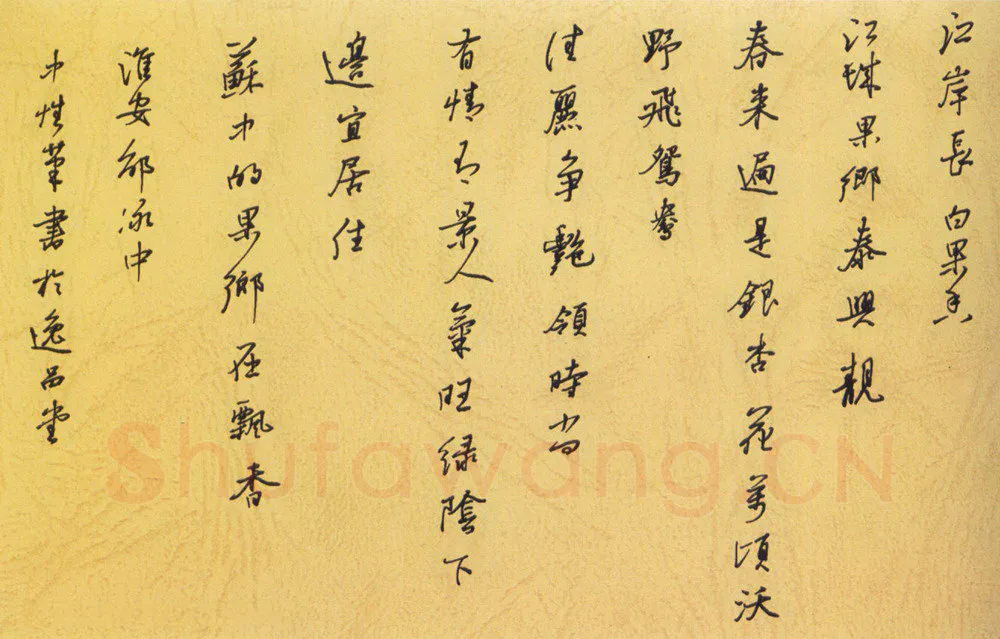 江岸長 白果
江城果鄉泰興靚
春来遍是銀杏花萬頃沃
野飛鴛鴦
佳麗争艷領時尚
有情有景人氣旺緑陰下
邊宜居住
蘇中的果鄉在飄香
淮安邵冰中
中性筆書於逸品堂
Shufawang.CN